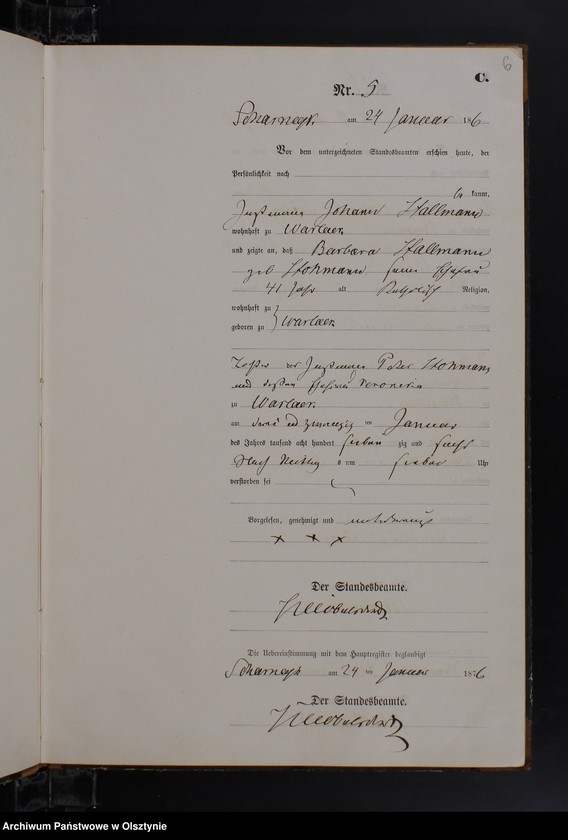 6
C.
Nr. 5
Scharnegk am 24 Januar 1876
Vor dem unterzeichneten Standesbeamten erschien heute, der
Persönlichkeit nach
be kannt,
Johann Hallmann
wohnhaft zu Warlaek
und zeigte an, daß Barbara Hallmann
geb Hohmann seine Ehefrau
41 Jahr alt Katholisch Religion,
wohnhaft zu
geboren zu } Warlaek
Tochter des Peter Hohmann
und dessen Ehefrau Veronica
zu Warlaek
am drei und zwanzigsten Januar
des Jahres tausend acht hundert sieben zig und sechs
Nach mittags um sieben Uhr
verstorben sei
Vorgelesen, genehmigt und
x x x
Der Standesbeamte.
Die Uebereinstimmung mit dem Hauptregister beglaubigt
Scharnegk am 24 ten Januar 1876
Der Standesbeamte.
Archiwum Państwowe w Olsztynie